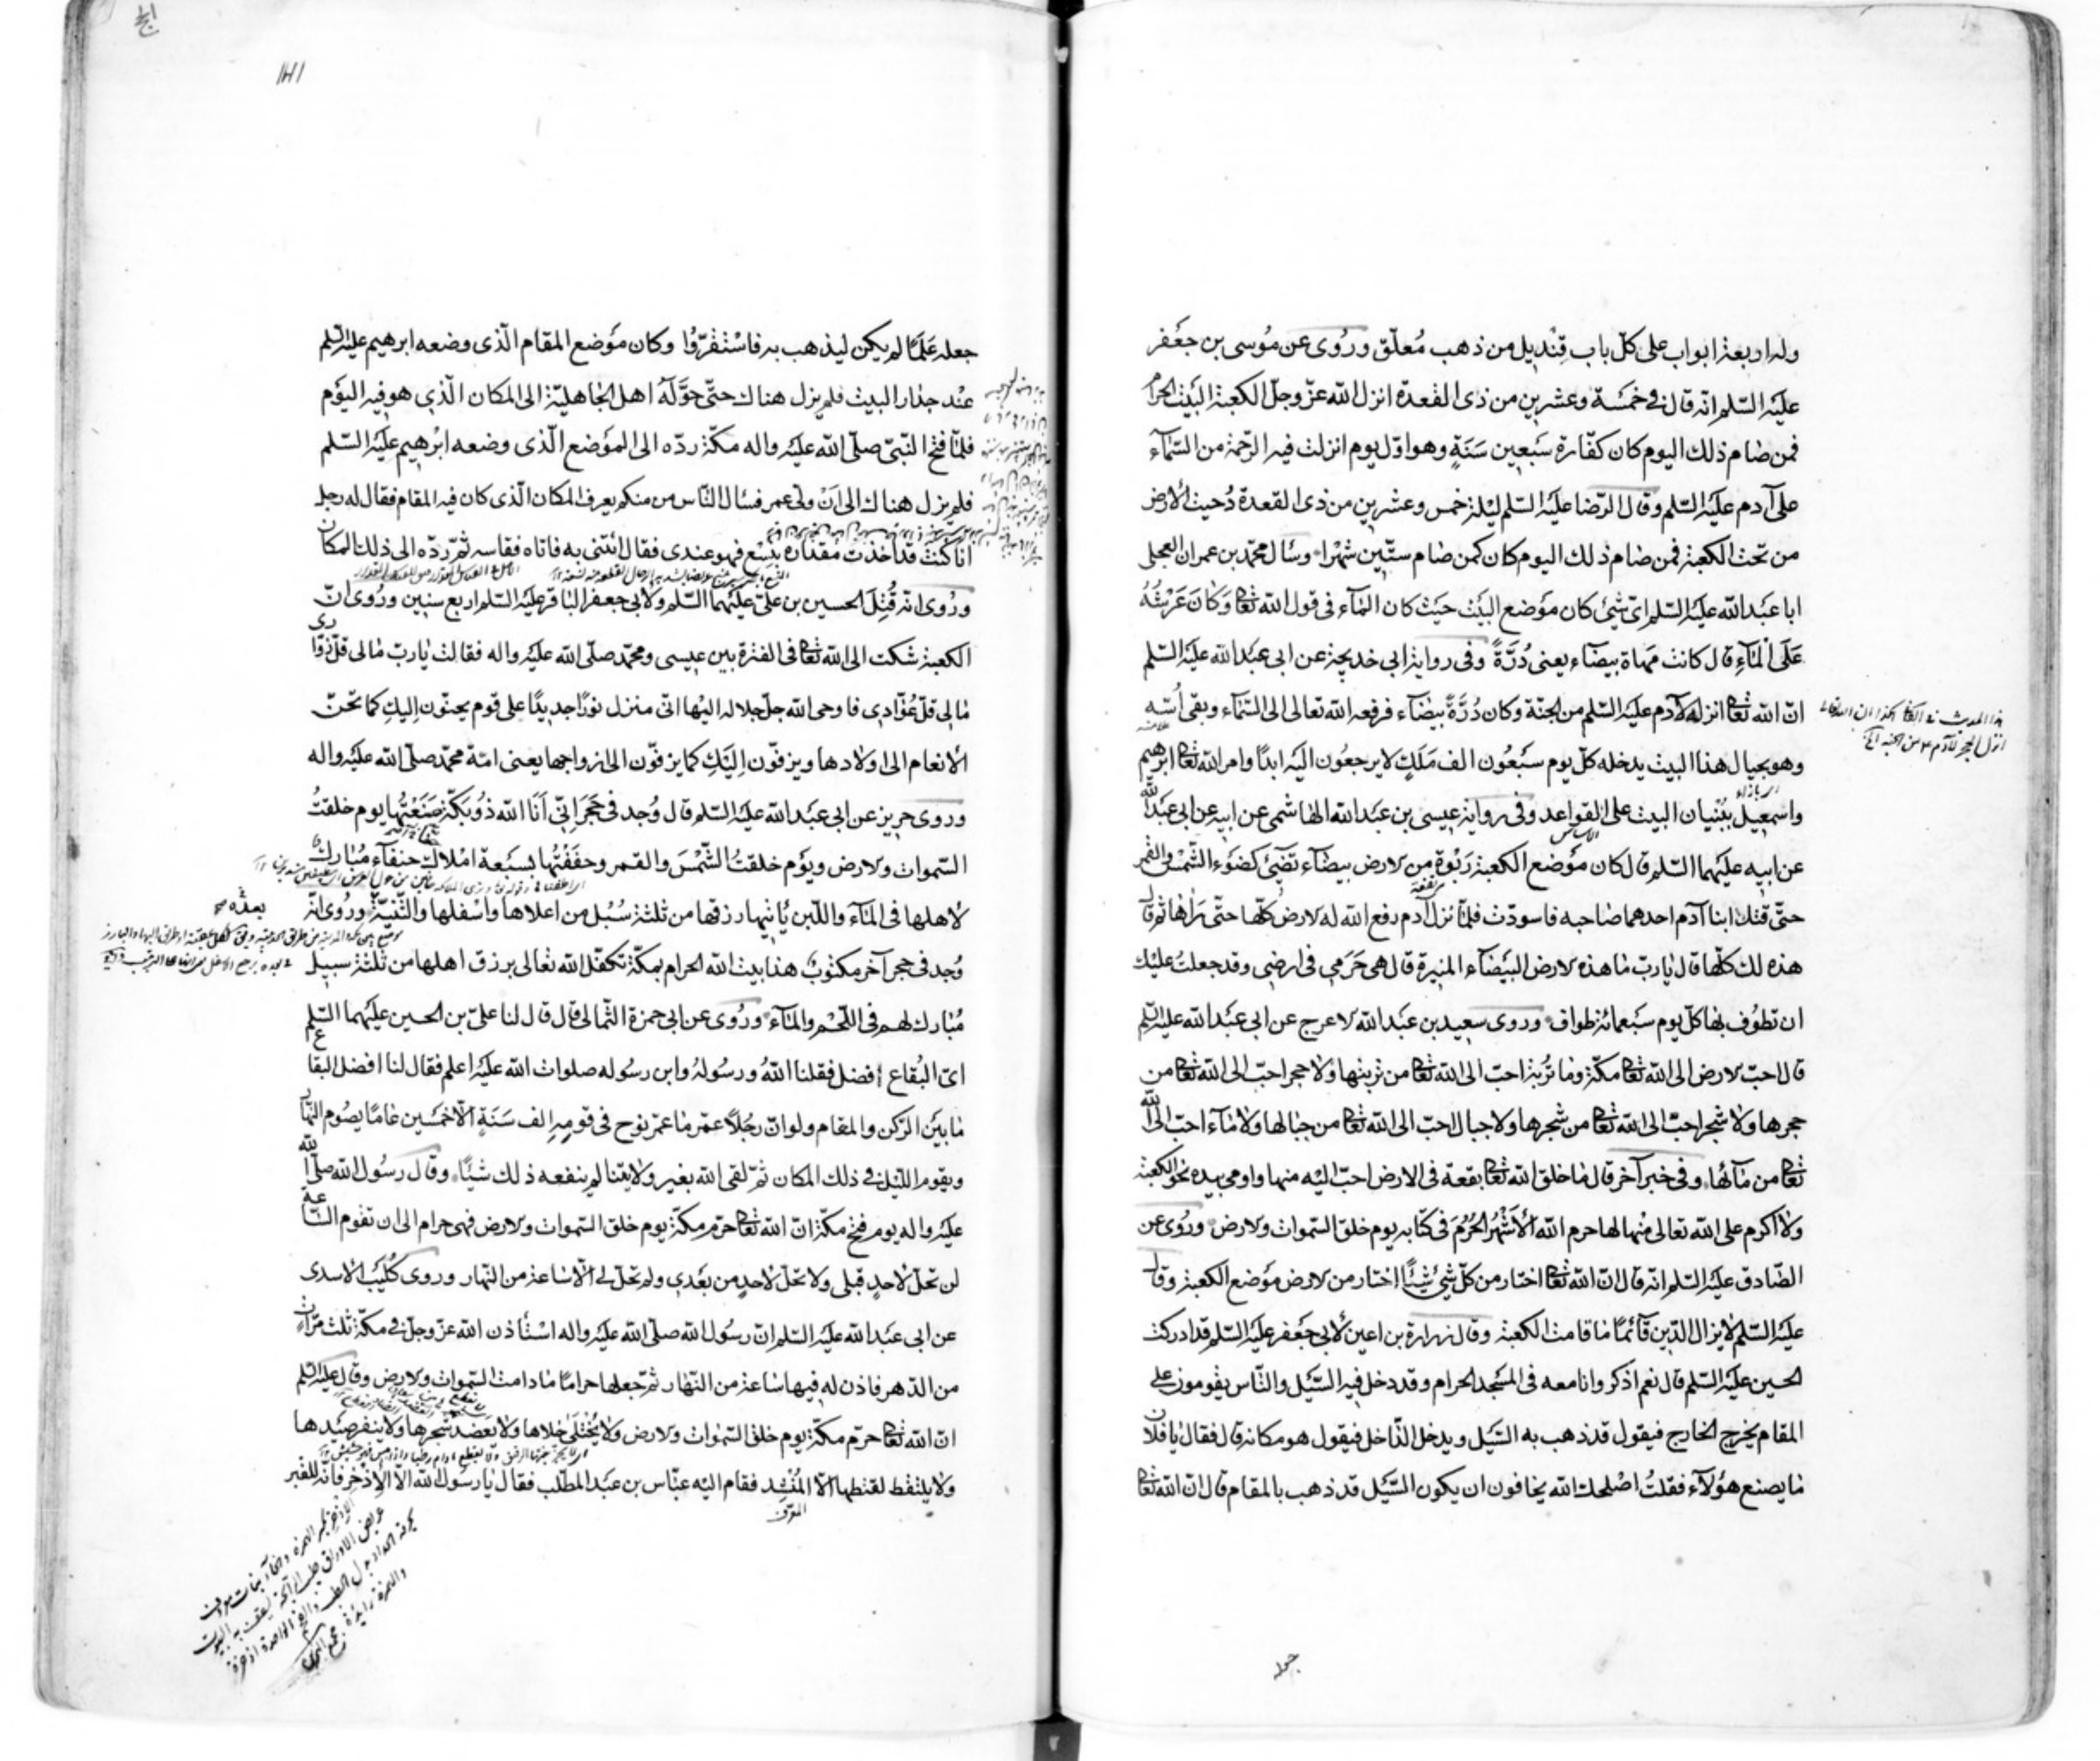 وله اربعة ابواب على كلّ باب قِنْديل من ذهب مُعلّق ورُوى عن مُوسى بن جعفر
عليه السّلم انّه قال فى خمسة وعشرين من ذى القعدة انزل الله عزّ وجلّ الكعبة البيت الحرام
فمن صام ذلك اليوم كان كفّارة سَبعين سَنَةٍ وهو اوّل يوم انزلت فيه الرّحمة من السّماء
على آدم عليه السّلم وقال الرّضا عليه السّلم ليلة خمس وعشرين من ذى القعدة دُحيت الأرض
من تحت الكعبة فمن صام ذلك اليوم كان كمن صام ستّين شهْرا وسأل محمّد بن عمران العجلى
ابا عبد الله عليه السّلم اىّ شيئ كان موضع البيت حيث كان الماء فى قول الله تعا وَكانَ عَرْشُهُ
عَلَى الْمَآءِ قال كانت مَهاة بيضاء يعنى دُرّةً وفى رواية ابى خديجة عن ابى عبد الله عليه السّلم
انّ الله تعا انزله لآدم عليه السّلم من الجنّة وكان دُرّةً بيضآء فرفعه الله تعالى الى السّماء وبقى اُسّه
وهو بحيال هذا البيت يدخله كلّ يوم سَبْعُون الف مَلَكٍ لا يرجعُون اليه ابدًا وامر الله تعا ابرهيم
واسمعيل ببُنْيان البيت على القواعد وفى رواية عيسى بن عبد الله الهاشمى عن ابيه عن ابى عبد الله
عن ابيه عليهما السّلم قال كان موضع الكعبة رَبْوة من الارض بيضاء تضيئ كضوء الشّمس والقمر
حتّى قتل ابنا آدم احدهما صاحبه فاسودّت فلمّا نزل آدم رفع الله له الارض كلّها حتّى رَاٰها ثمّ قال
هذه لك كلّها قال يا ربّ ما هذه الارض البيضاء المنيرة قال هى حَرَمى فى ارضى وقد جعلتُ عليك
ان تطوُف بها كلّ يوم سَبعمائة طواف وروى سعيد بن عبد الله الاعرج عن ابى عبد الله عليه السّلم
قال احبّ الارض الى الله تعا مكّة وما تُربة احبّ الى الله تعا من تربتها ولا حجر احبّ الى الله تعا من
حجرها ولا شجر احبّ الى الله تعا من شجرها ولا جبال احبّ الى الله تعا من جبالها ولا ماء احبّ الى الله
تعا من مائها وفى خبر آخر قال ما خلق الله تعا بقعة فى الارض احبّ اليه منها واومى بيده نحو الكعبة
ولا اكرم على الله تعالى منها لها حرم الله الأشْهُر الحُرُمَ فى كتابه يوم خلق السّموات والارض ورُوى عن
الصّادق عليه السّلم انّه قال انّ الله تعا اختار من كلّ شيئ شيئًا اختار من الارض موضع الكعبة وقال
عليه السّلم لا يزال الدّين قآئمًا ما قامت الكعبة وقال زرارة بن اعين لأبى جعفر عليه السّلم قد ادركت
الحسين عليه السّلم قال نعم اذكر وانا معه فى المسجد الحرام وقد دخل فيه السّيل والنّاس يقومون على
المقام يخرج الخارج فيقول قد ذهب به السّيل ويدخل الدّاخل فيقول هو مكانه قال فقال يا فلان
ما يصنع هؤلآء فقلتُ اصْلحك الله يخافون ان يكون السّيل قد ذهب بالمقام قال انّ الله تعا
جعله
جعله عَلَمًا لم يكن ليذهب به فاسْتَقرّوُا وكان موضع المقام الّذى وضعه ابرهيم عليه السّلم
عند جدار البيت فلم يزل هناك حتّى حَوّلَهُ اهل الجاهليّة الى المكان الّذى هو فيه اليوم
فلمّا فتح النّبىّ صلّى الله عليه واله مكّة ردّه الى الموضع الّذى وضعه ابرهيم عليه السّلم
فلم يزل هناك الى اَنْ ولى عمر فسأل النّاس من منكم يعرف المكان الّذى كان فيه المقام فقال له رجل
انا كنت قد اخذت مقداره بنِسْع فهو عندى فقال ائتنى به فاتاه فقاسه ثمّ ردّه الى ذلك المكان
ورُوى انّه قُتِلَ الحسين بن علىّ عليهما السّلم ولابى جعفر الباقر عليه السّلم اربع سنين ورُوى انّ
الكعبة شكت الى الله تعا فى الفترة بين عيسى ومحمّد صلّى الله عليه واله فقالت يا ربّ مالى قلّ زوّارى
مالى قلّ عُوّادى فاوحى الله جلّ جلاله اليها انّى منزل نورًا جديدًا على قوم يحنّون اليكِ كما تحنّ
الأنعام الى اولادها ويزفّون اليَكِ كما يزفّون الى ازواجها يعنى امّة محمّد صلّى الله عليه واله
وروى حريز عن ابى عبد الله عليه السّلم قال وُجد فى حَجَر اِنّى اَنَا الله ذو بَكّة صَنَعْتُها يوم خلقتُ
السّموات والارض ويَوْم خلقتُ الشّمْسَ والقمر وحففْتُها بسبعة املاك حنفآء مُبارك
لاهلها فى المآء واللّبن يأتيها رزقها من ثلثة سُبُل من اعلاها واسْفلها والثّنيّة ورُوى انّه
وُجد فى حجر آخر مكتوبٌ هذا بيت الله الحرام بمكّة تكفّل الله تعالى برزق اهلها من ثلثة سبيل
مُبارك لهم فى اللّحم والمآء ورُوى عن ابى حمزة الثّمالى قال قال لنا علىّ بن الحسين عليهما السّلم
اىّ البُقاع افضل فقلنا اللهُ ورسُولهُ وابن رسُوله صلوات الله عليه اعلم فقال لنا افضل البقاع
ما بين الرّكن والمقام ولو انّ رجُلًا عمّر ما عمّر نوح فى قومِهِ الف سَنَةٍ الّا خمسين عامًا يصُوم النّهار
ويقوم اللّيل فى ذلك المكان ثمّ لقى الله بغير ولايتنا لم ينفعه ذلك شيئًا وقال رسُول الله صلّى الله
عليه واله يوم فتح مكّة انّ الله تعا حرّم مكّة يوم خلق السّموات والارض فهى حرام الى ان تقوم السّاعة
لن تحلّ لاحدٍ قبلى ولا تحلّ لاحدٍ من بعدى ولم تحلّ لى الّا ساعة من النّهار وروى كُلَيْب الأسدى
عن ابى عبد الله عليه السّلم انّ رسُول الله صلّى الله عليه واله اسْتأذن الله عزّ وجلّ فى مكّة ثلث مَرّات
من الدّهر فاذن له فيها ساعة من النّهار ثمّ جعلها حرامًا ما دامت السّموات والارض وقال عليه السّلم
انّ الله تعا حرّم مكّة يوم خلق السّموات والارض ولا يُخْتَلَى خلاها ولا يعضد شجرها ولا ينفر صَيْدها
ولا يلتقط لقطتها الّا المُنْشِد فقام اليه عبّاس بن عبد المطّلب فقال يا رسُول الله الّا الاِذْخر فانّه للقبر
المعرّف